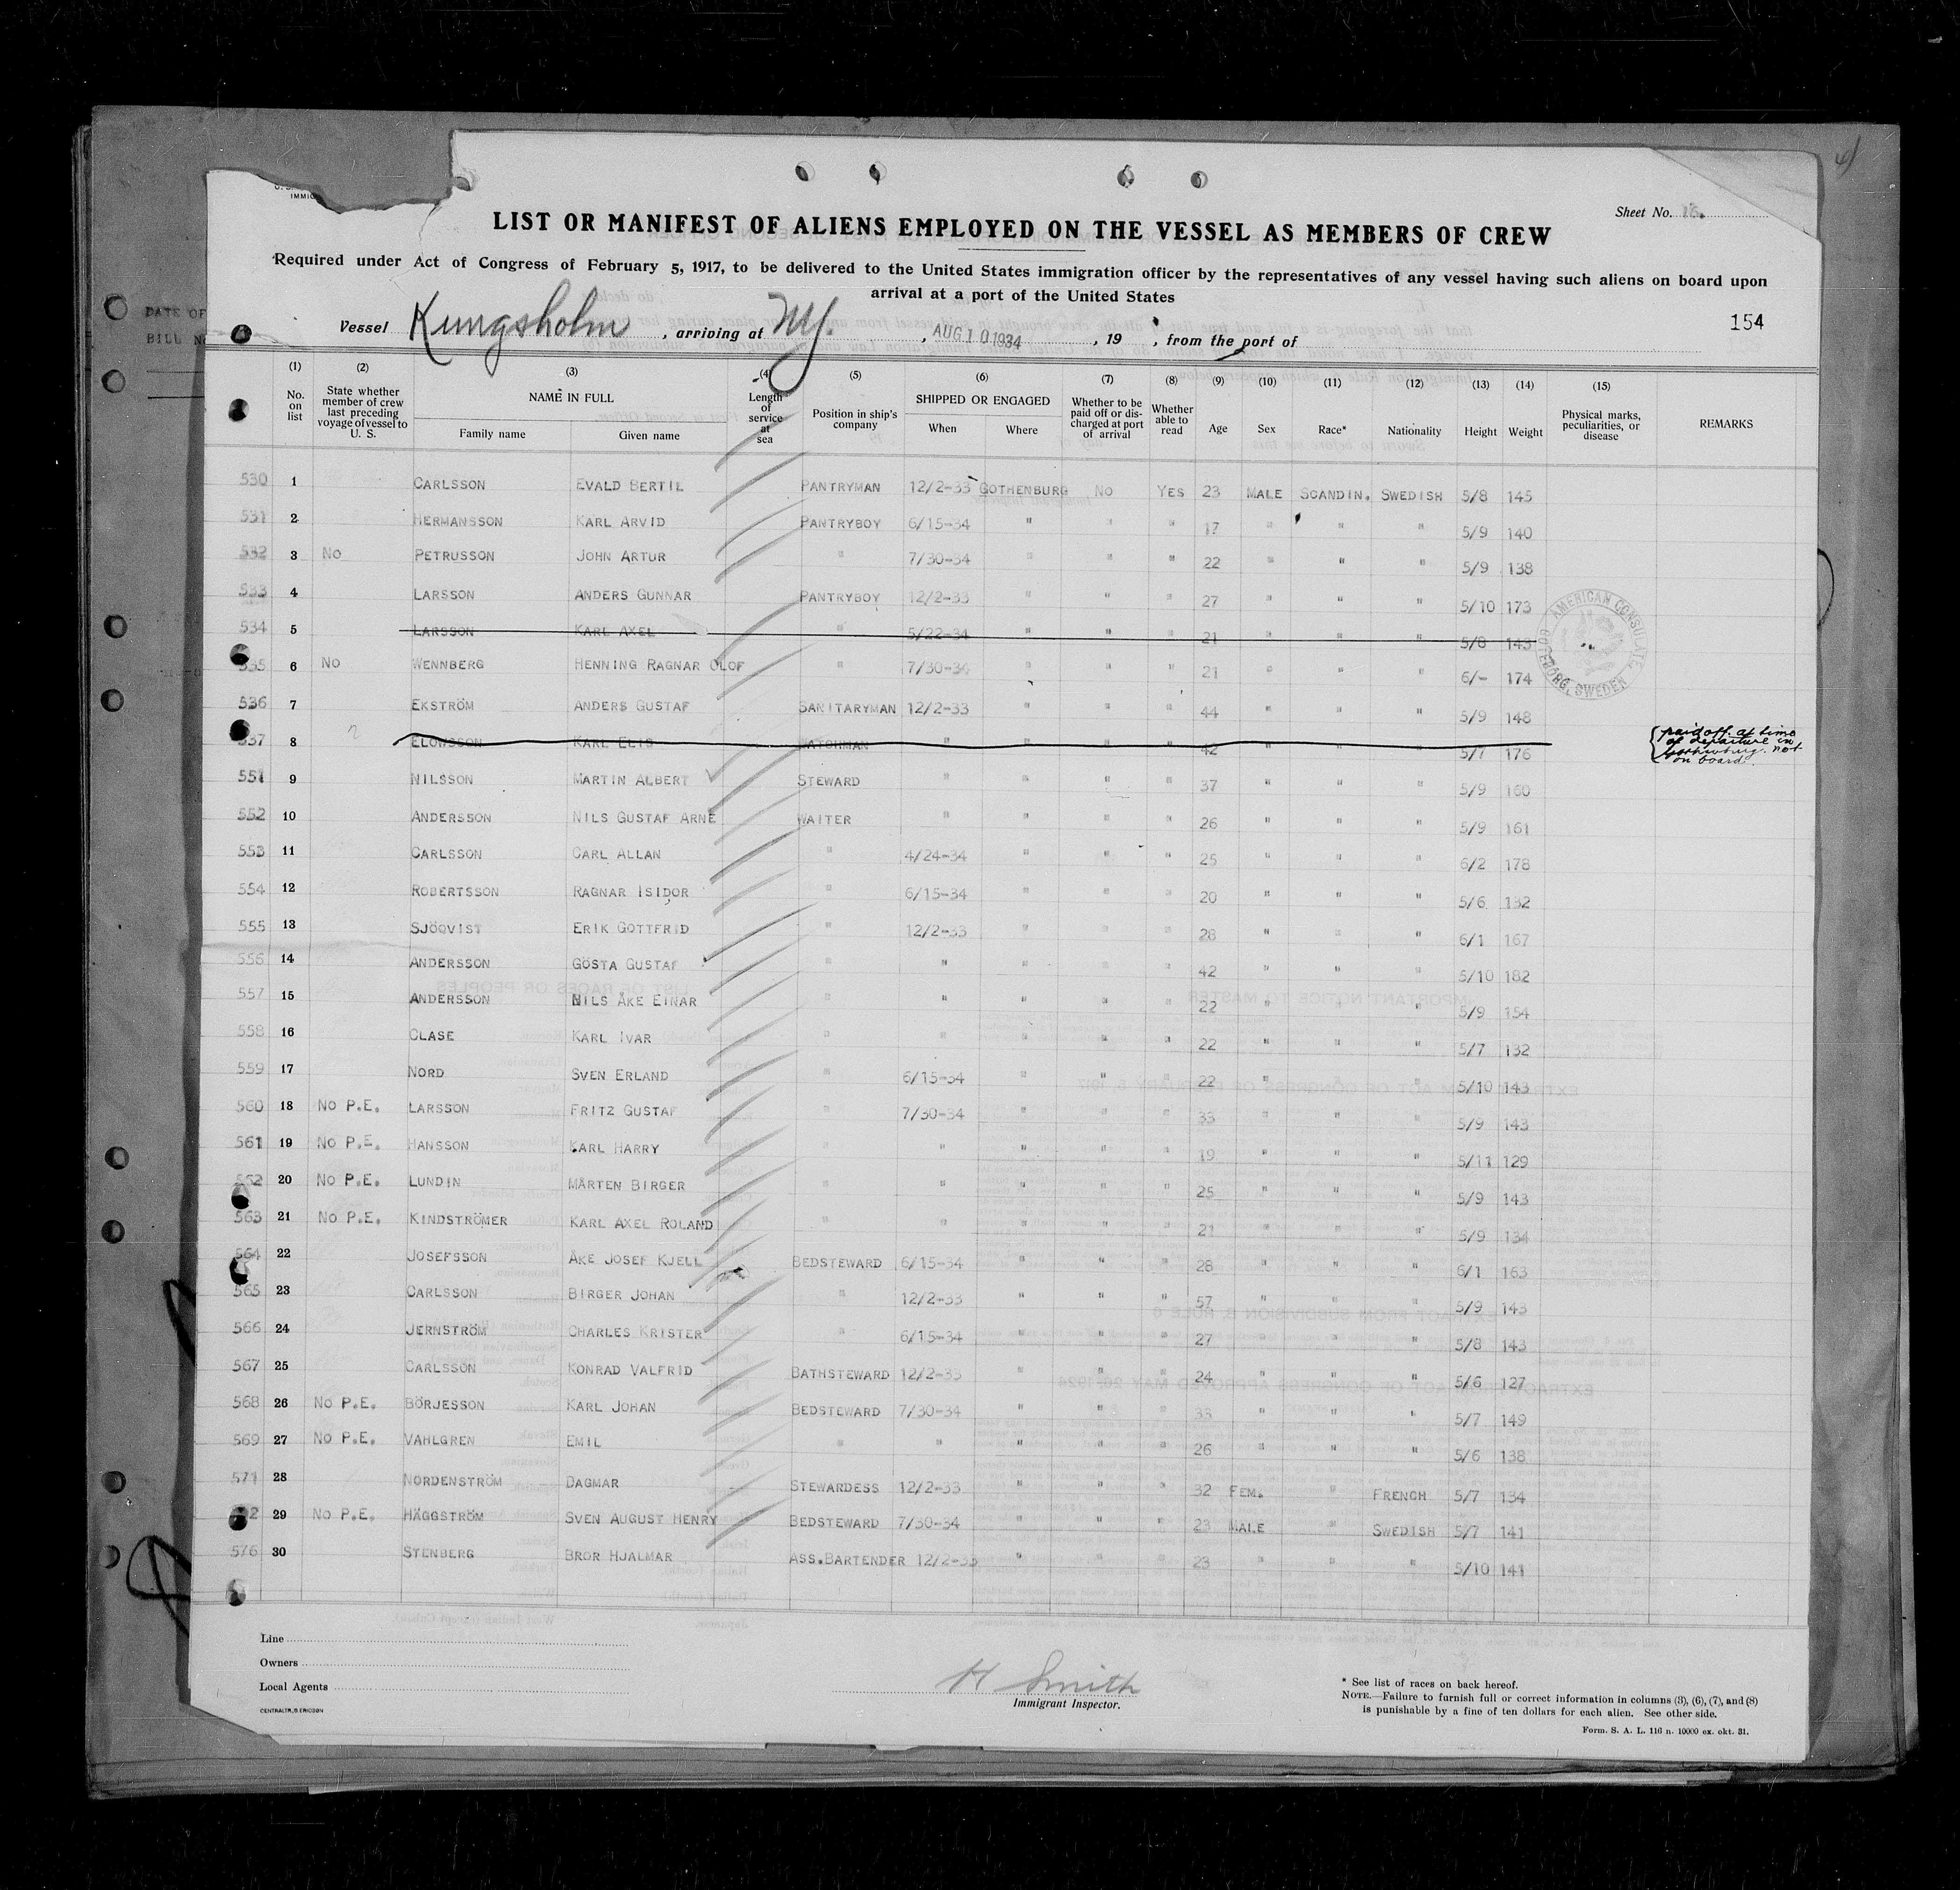 DATE OF
BILL NO
IMMIG
Sheet No. 16.
LIST OR MANIFEST OF ALIENS EMPLOYED ON THE VESSEL AS MEMBERS OF CREW
Required under Act of Congress of February 5, 1917, to be delivered to the United States immigration officer by the representatives of any vessel having such aliens on board upon
arrival at a port of the United States
154
Vessel Kungsholm, arriving at NY., AUG 10 1934, 19 , from the port of
(1) (2) (3) (4) (5) (6) (7) (8) (9) (10) (11) (12) (13) (14) (15)
No. on list State whether member of crew last preceding voyage of vessel to U. S. NAME IN FULL Family name Given name Length of service at sea Position in ship's company SHIPPED OR ENGAGED When Where Whether to be paid off or discharged at port of arrival Whether able to read Age Sex Race* Nationality Height Weight Physical marks, peculiarities, or disease REMARKS
530 1 CARLSSON EVALD BERTIL PANTRYMAN 12/2-33 GOTHENBURG NO YES 23 MALE SCANDIN. SWEDISH 5/8 145
531 2 HERMANSSON KARL ARVID PANTRYBOY 6/15-34 " " " 17 " " " 5/9 140
532 3 NO PETRUSSON JOHN ARTUR " 7/30-34 " " " 22 " " " 5/9 138
533 4 LARSSON ANDERS GUNNAR PANTRYBOY 12/2-33 " " " 27 " " " 5/10 173
534 5 LARSSON KARL AXEL " 5/22-34 " " " 21 " " " 5/8 143
AMERICAN CONSULATE, GOTEBORG, SWEDEN
535 6 NO WENNBERG HENNING RAGNAR OLOF " 7/30-34 " " " 21 " " " 6/- 174
536 7 EKSTRÖM ANDERS GUSTAF SANITARYMAN 12/2-33 " " " 44 " " " 5/9 148
537 8 ELOWSSON KARL ELIS WATCHMAN " " " " 42 " " " 5/7 176 paid off at time of departure in Gothenburg. not on board.
551 9 NILSSON MARTIN ALBERT STEWARD " " " " 37 " " " 5/9 160
552 10 ANDERSSON NILS GUSTAF ARNE WAITER " " " " 26 " " " 5/9 161
553 11 CARLSSON CARL ALLAN " 4/24-34 " " " 25 " " " 6/2 178
554 12 ROBERTSSON RAGNAR ISIDOR " 6/15-34 " " " 20 " " " 5/6 132
555 13 SJÖQVIST ERIK GOTTFRID " 12/2-33 " " " 28 " " " 6/1 167
556 14 ANDERSSON GÖSTA GUSTAF " " " " " 42 " " " 5/10 182
557 15 ANDERSSON NILS ÅKE EINAR " " " " " 22 " " " 5/9 154
558 16 CLASE KARL IVAR " " " " " 22 " " " 5/7 132
559 17 NORD SVEN ERLAND " 6/15-34 " " " 22 " " " 5/10 143
560 18 NO P.E. LARSSON FRITZ GUSTAF " 7/30-34 " " " 33 " " " 5/9 143
561 19 NO P.E. HANSSON KARL HARRY " " " " " 19 " " " 5/11 129
562 20 NO P.E. LUNDIN MÅRTEN BIRGER " " " " " 25 " " " 5/9 143
563 21 NO P.E. KINDSTRÖMER KARL AXEL ROLAND " " " " " 21 " " " 5/9 134
564 22 JOSEFSSON ÅKE JOSEF KJELL BEDSTEWARD 6/15-34 " " " 28 " " " 6/1 163
565 23 CARLSSON BIRGER JOHAN " 12/2-33 " " " 57 " " " 5/9 143
566 24 JERNSTRÖM CHARLES KRISTER " 6/15-34 " " " 27 " " " 5/8 143
567 25 CARLSSON KONRAD VALFRID BATHSTEWARD 12/2-33 " " " 24 " " " 5/6 127
568 26 NO P.E. BÖRJESSON KARL JOHAN BEDSTEWARD 7/30-34 " " " 33 " " " 5/7 149
569 27 NO P.E. VAHLGREN EMIL " " " " " 26 " " " 5/6 138
571 28 NORDENSTRÖM DAGMAR STEWARDESS 12/2-33 " " " 32 FEM. " FRENCH 5/7 134
29 NO P.E. HÄGGSTRÖM SVEN AUGUST HENRY BEDSTEWARD 7/30-34 " " " 23 MALE " SWEDISH 5/7 141
576 30 STENBERG BROR HJALMAR ASS.BARTENDER 12/2-33 " " " 23 " " " 5/10 141
Line
Owners
Local Agents
CENTRALTR., S. ERICSON
H Smith
Immigrant Inspector.
* See list of races on back hereof.
NOTE.—Failure to furnish full or correct information in columns (3), (6), (7), and (8)
is punishable by a fine of ten dollars for each alien. See other side.
Form. S. A. L. 116 n. 10000 ex. okt. 31.